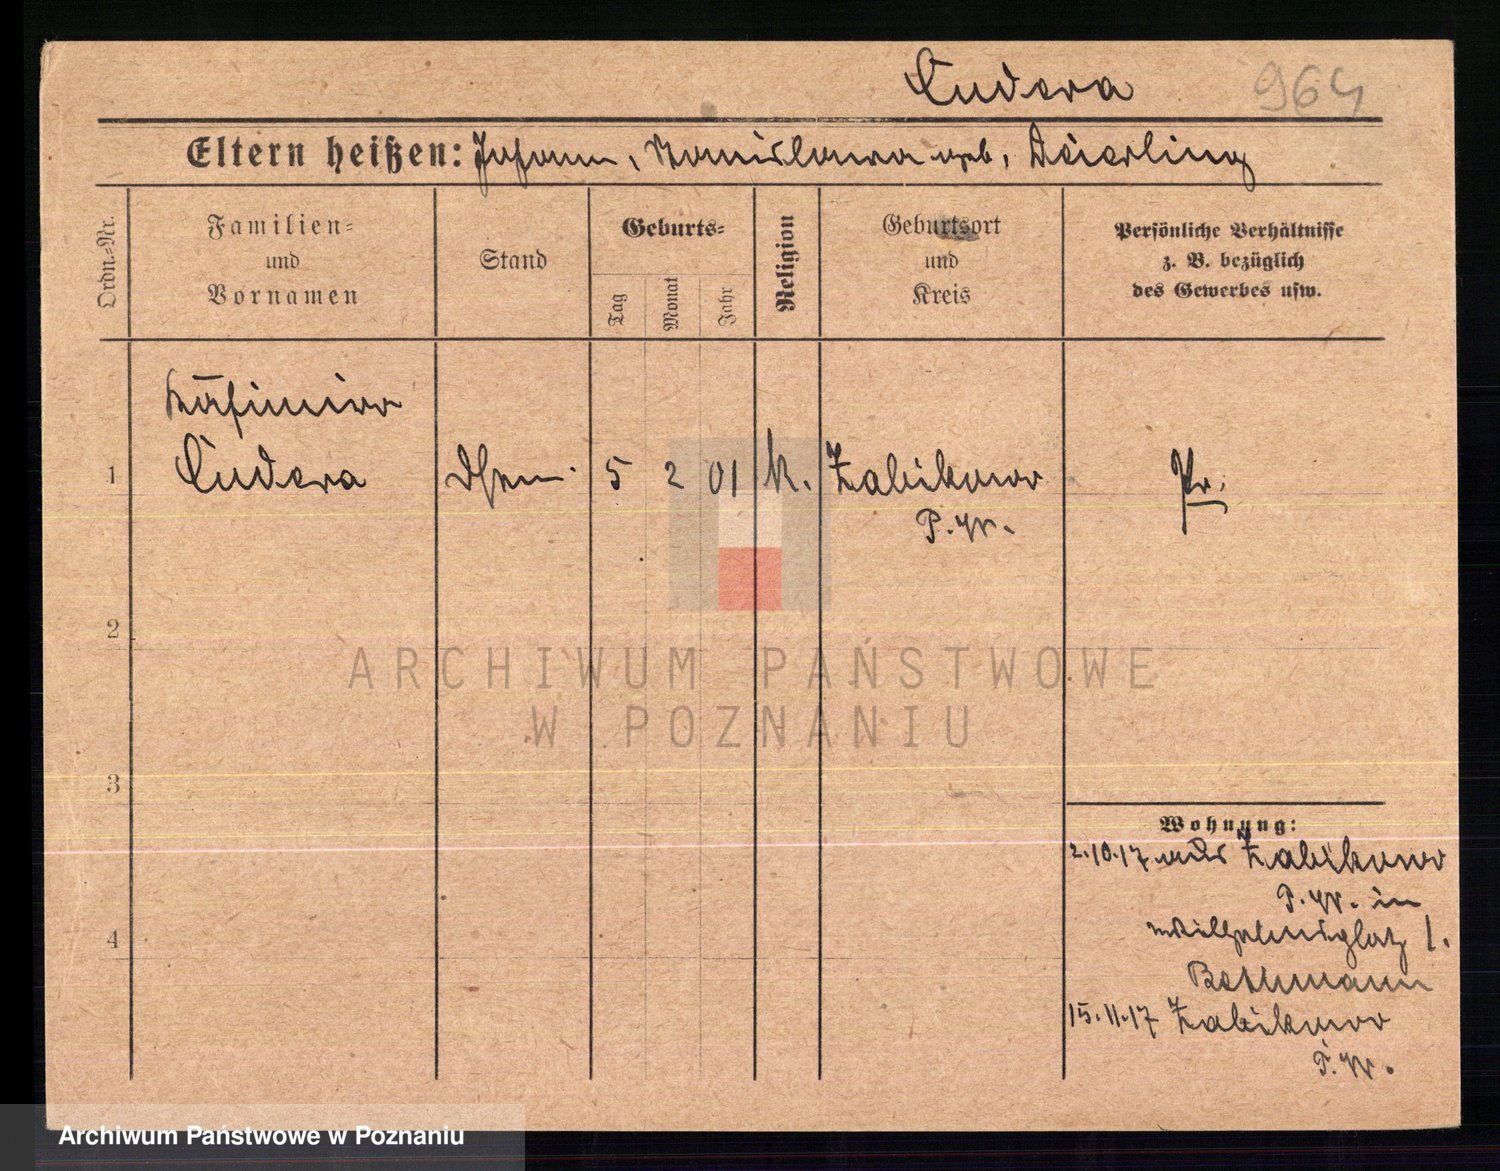 Cudera
964
Eltern heißen: Johann, Stanislawa geb.
Ordn.-Nr.
Familien=
und
Vornamen
Stand
Geburts=
Tag
Monat
Jahr
Religion
Geburtsort
und
Kreis
Persönliche Verhältnisse
z. B. bezüglich
des Gewerbes usw.
Kasimira
1 Cudera 5 2 01 k. Zabikowo Pr.
P. W.
2
3
Wohnung:
2.10.17 aus Zabikowo
P. W. in
Wilhelmsplatz 1.
4
Bethmann
15.11.17 Zabikowo
P. W.
ARCHIWUM PAŃSTWOWE
W POZNANIU
Archiwum Państwowe w Poznaniu